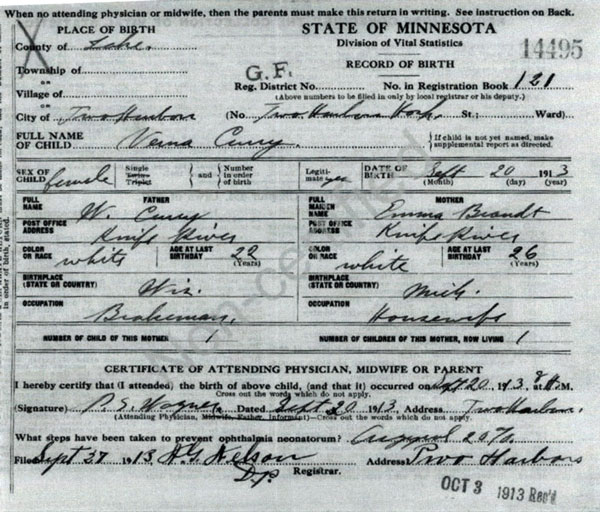 When no attending physician or midwife, then the parents must make this return in writing. See instruction on Back.
PLACE OF BIRTH
STATE OF MINNESOTA
County of Lake.
Division of Vital Statistics
14495
Township of
RECORD OF BIRTH
or
Village of
G.F.
Reg. District No. No. in Registration Book 121
(Above numbers to be filled in only by local registrar or his deputy.)
or
City of Two Harbors (No. Two Harbors Hosp. St.; Ward)
FULL NAME OF CHILD Verna Curry. If child is not yet named, make supplemental report as directed.
SEX OF CHILD female Single Twin Triplet and Number in order of birth Legitimate yes DATE OF BIRTH Sept 20 1913
(Month) (day) (year)
FULL NAME FATHER W. Curry FULL MAIDEN NAME MOTHER Emma Brandt
POST OFFICE ADDRESS Knife River POST OFFICE ADDRESS Knife River
COLOR OR RACE white AGE AT LAST BIRTHDAY 22 (Years) COLOR OR RACE white AGE AT LAST BIRTHDAY 26 (Years)
BIRTHPLACE (STATE OR COUNTRY) Wis. BIRTHPLACE (STATE OR COUNTRY) Mich.
OCCUPATION Brakeman. OCCUPATION Housewife
NUMBER OF CHILD OF THIS MOTHER 1 NUMBER OF CHILDREN, OF THIS MOTHER, NOW LIVING 1
CERTIFICATE OF ATTENDING PHYSICIAN, MIDWIFE OR PARENT
I hereby certify that (I attended) the birth of above child, (and that it) occurred on Sept 20 1913. M.
Cross out the words which do not apply.
(Signature) Dated Sept 20 1913, Address Two Harbors.
(Attending Physician, Midwife, Father, Informant)—Cross out the words which do not apply.
What steps have been taken to prevent ophthalmia neonatorum? Argyrol 20%.
Filed Sept 27 1913 Nelson Registrar. Address Two Harbors
OCT 3 1913 Rec'd
in order of birth, stated.